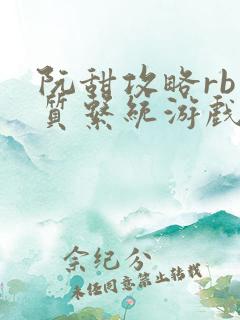 阮甜攻略rb
质系统游戏
佘纪分
未经同意禁止转载